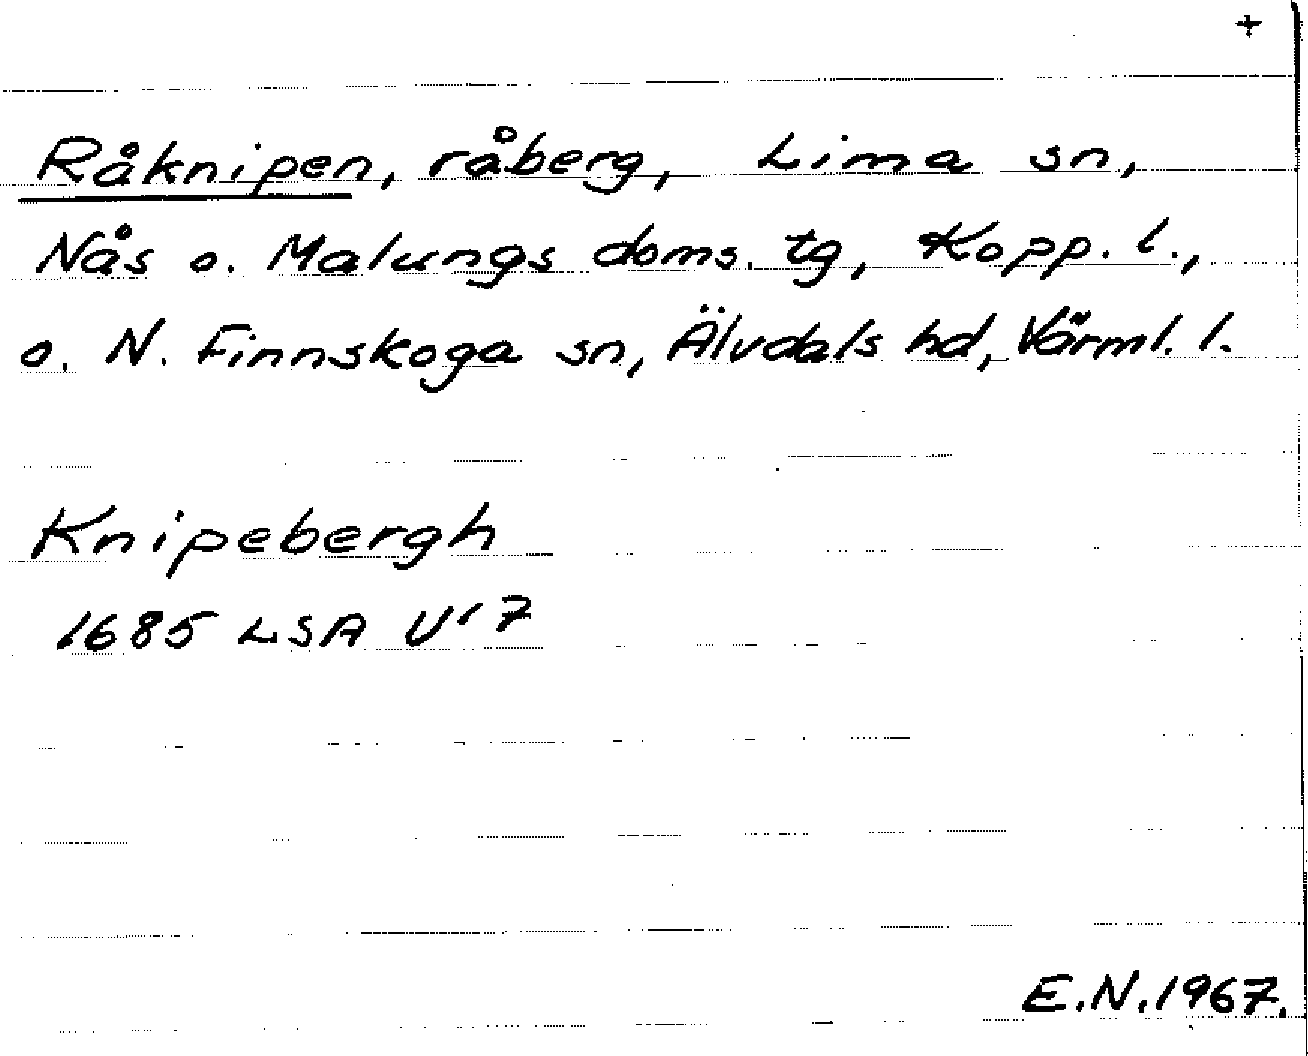 +
Råknipen, råberg, Lima sn,
Nås o. Malungs doms. tg, Kopp. l.,
o. N. Finnskoga sn, Älvdals hd, Värml. l.
Knipebergh
1685 LSA U'7
E.N.1967.